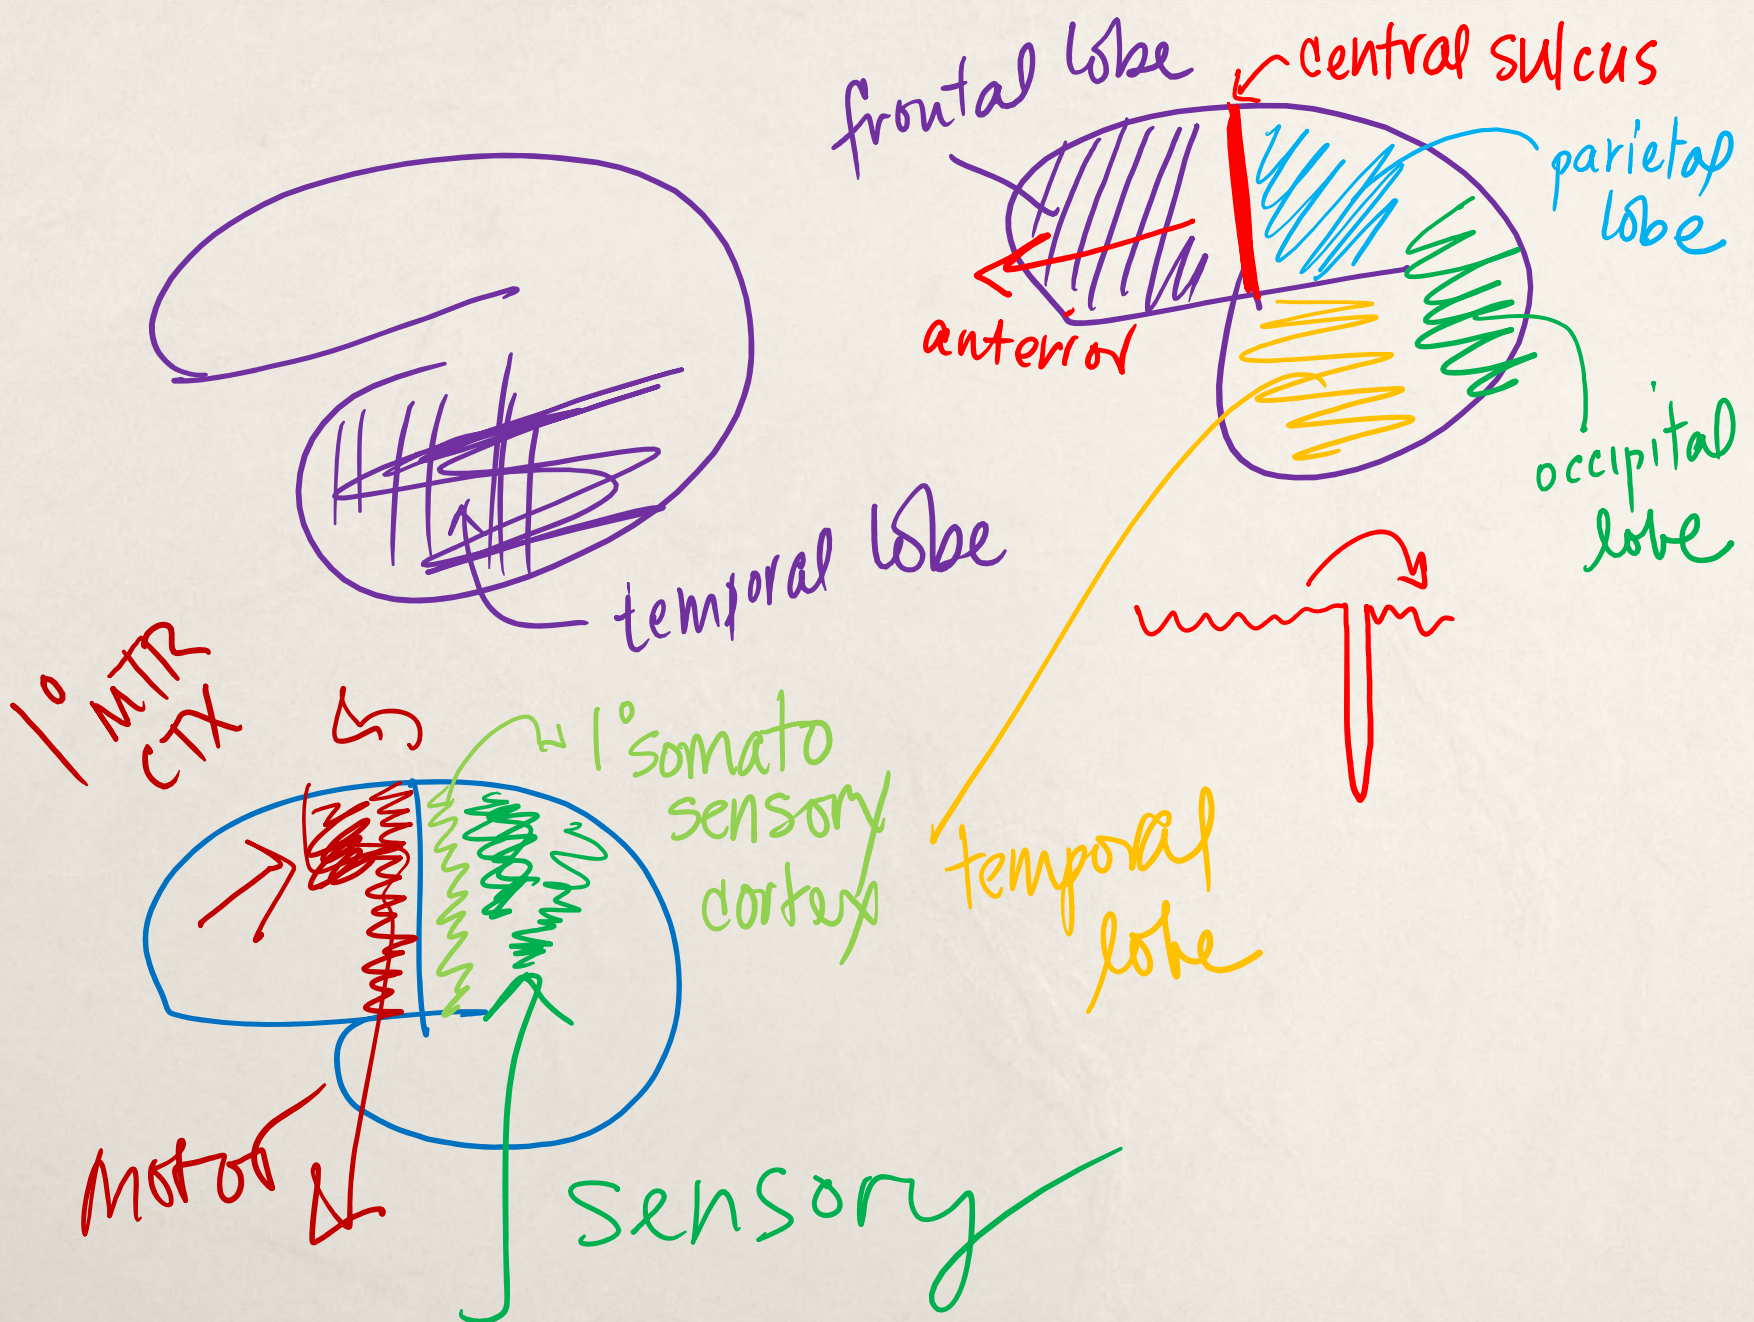 frontal lobe
central sulcus
parietal
lobe
anterior
occipital
lobe
temporal lobe
1° MTR
CTX
1° somato
sensory
cortex
temporal
lobe
Motor
sensory